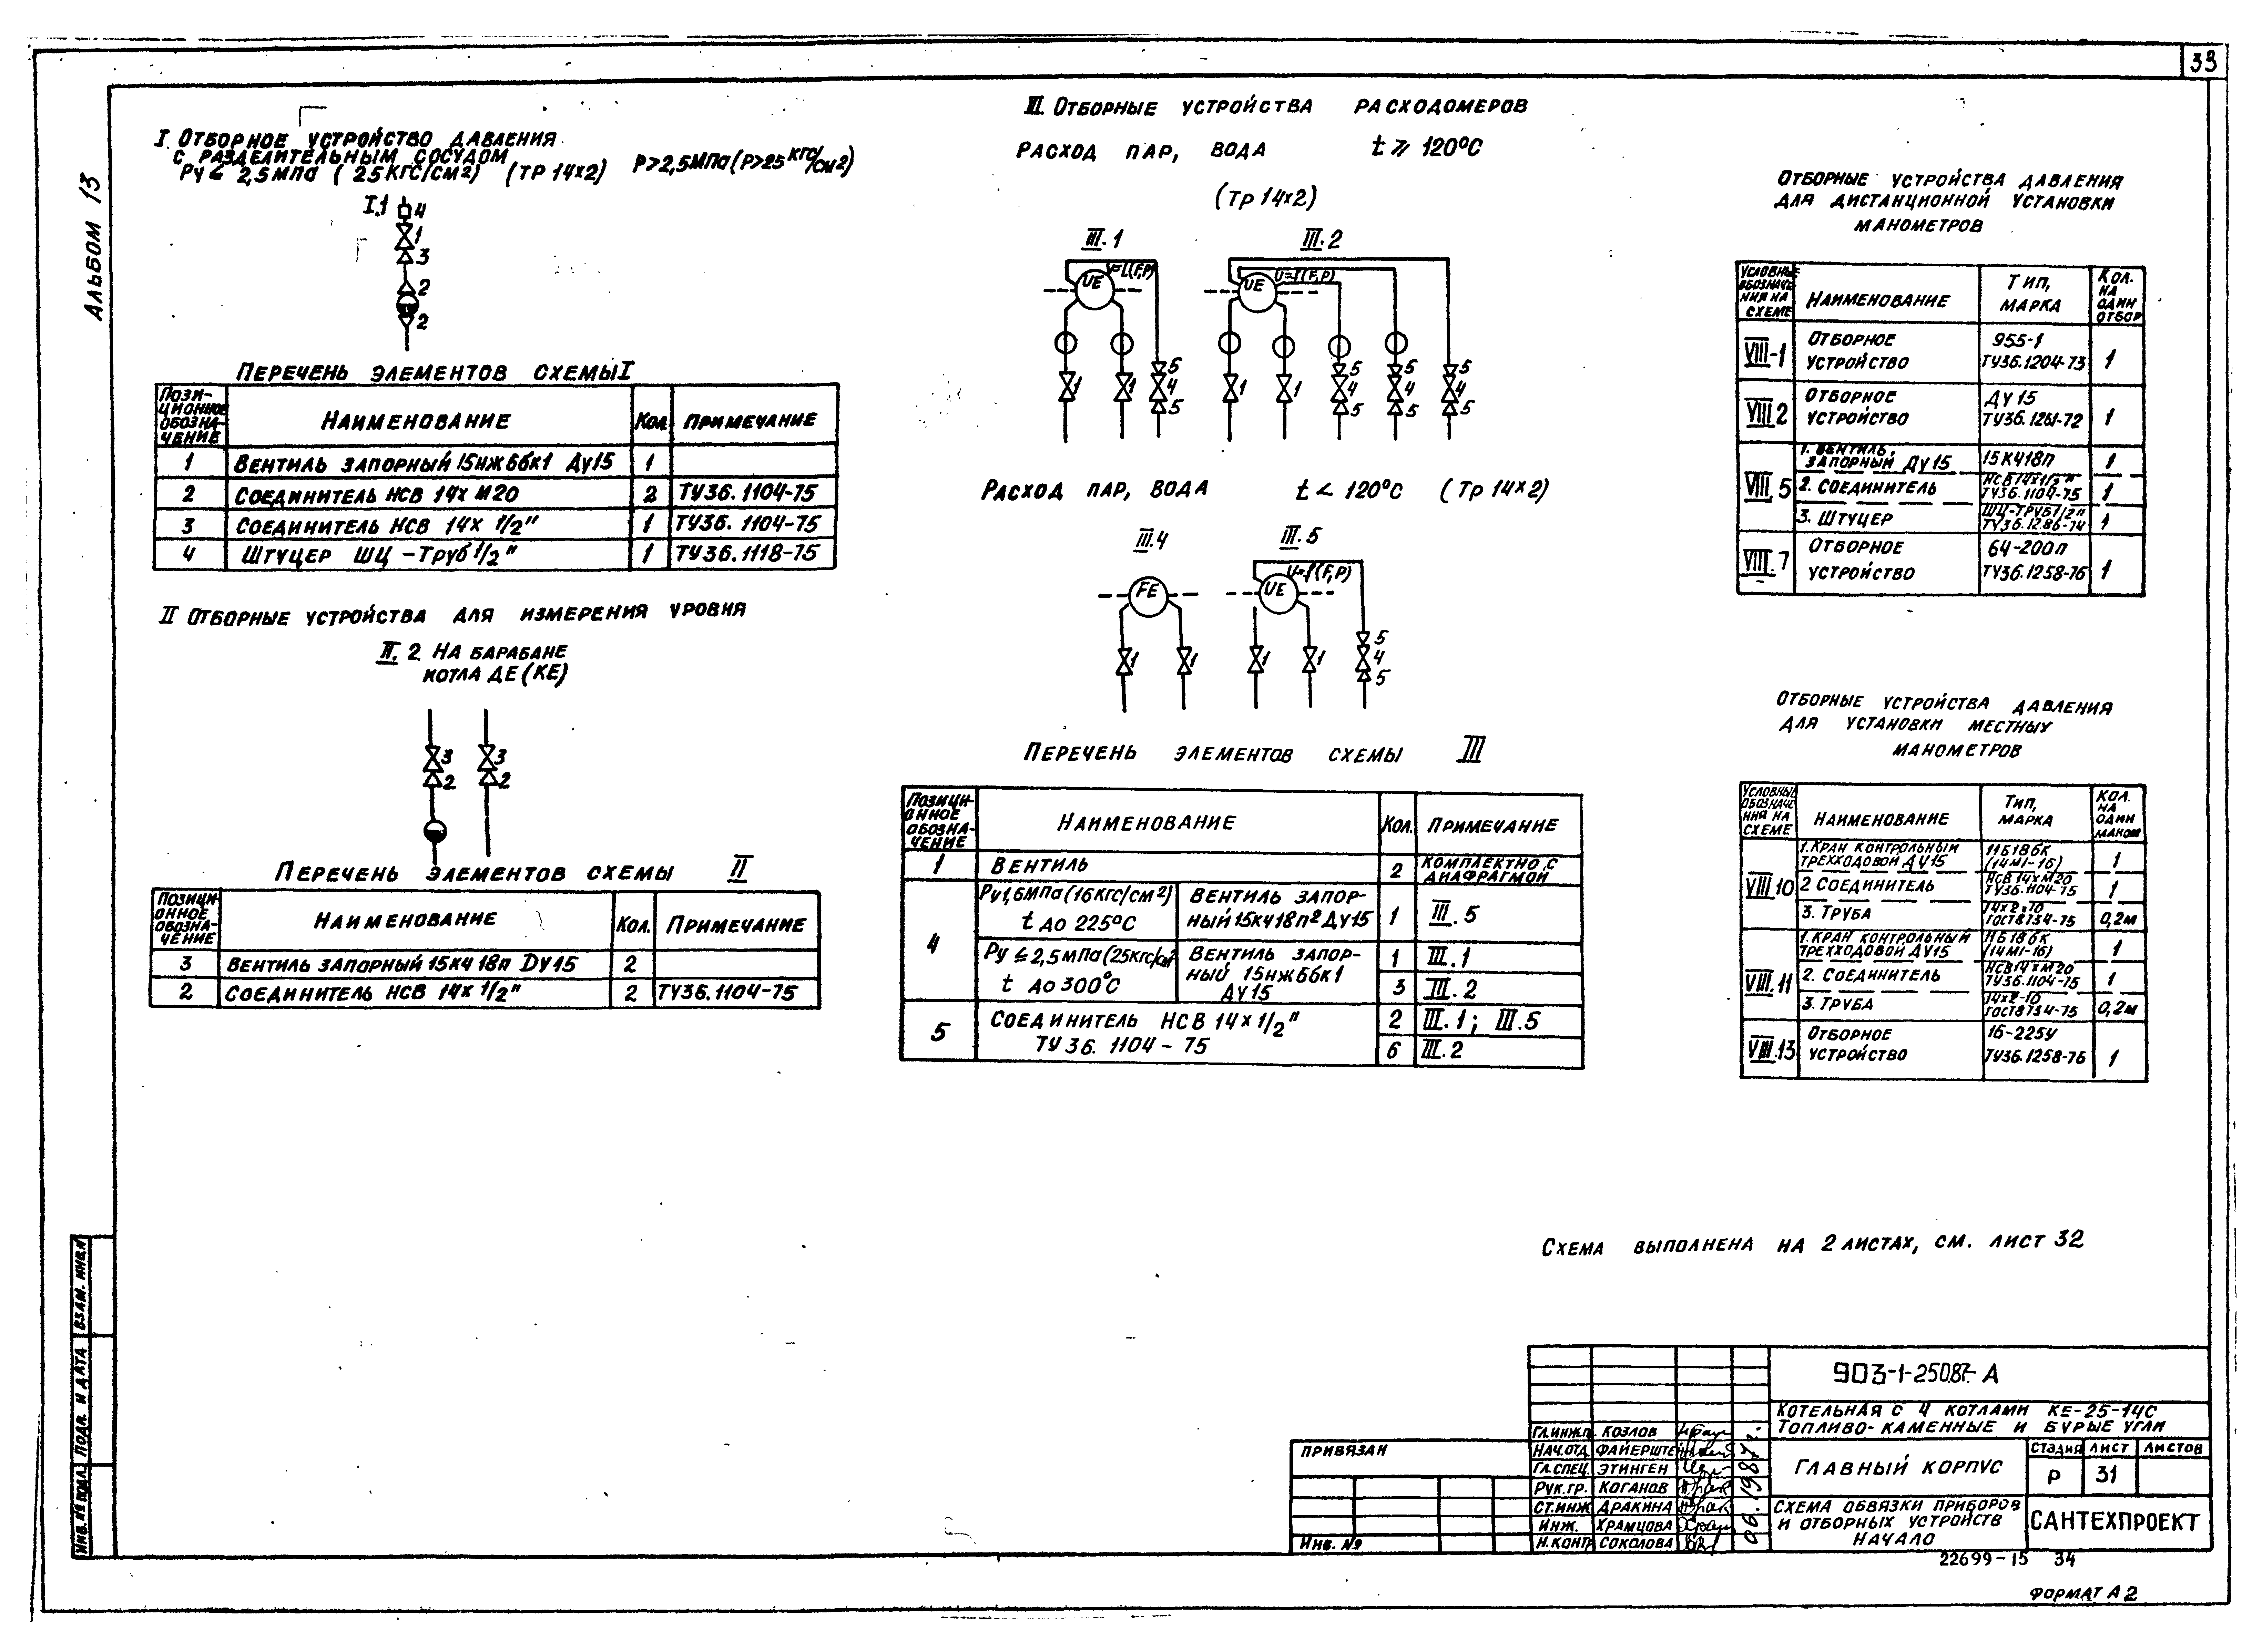 33
Альбом 13
I Отборное устройство давления
с разделительным сосудом
Ру ≤ 2,5МПа (25кгс/см²) (Тр 14×2) Р>2,5МПа(Р>25 кгс/см²)
I.1
4
1
3
2
2
Перечень элементов схемы I
Позиционное обозначение | Наименование | Кол. | Примечание
1 | Вентиль запорный 15нж6бк1 Ду15 | 1
2 | Соединитель НСВ 14×М20 | 2 | ТУ36.1104-75
3 | Соединитель НСВ 14× 1/2" | 1 | ТУ36.1104-75
4 | Штуцер ШЦ-Труб 1/2" | 1 | ТУ36.1118-75
II Отборные устройства для измерения уровня
II.2 На барабане
котла ДЕ(КЕ)
3 3
2 2
Перечень элементов схемы II
Позиционное обозначение | Наименование | Кол. | Примечание
3 | Вентиль запорный 15кч18п Dу15 | 2
2 | Соединитель НСВ 14×1/2" | 2 | ТУ36.1104-75
III. Отборные устройства расходомеров
Расход пар, вода t ⩾ 120°С
(Тр 14×2)
III.1 III.2
UE UE U=f(F,P)
5 5 5 5
1 1 4 1 1 4 4 4
5 5 5 5
Расход пар, вода t < 120°С (Тр 14×2)
III.4 III.5
FE UE U=f(F,P)
5
1 1 1 1 4
5
Перечень элементов схемы III
Позиционное обозначение | Наименование | Кол. | Примечание
1 | Вентиль | 2 | Комплектно с диафрагмой
4 | Ру1,6МПа(16кгс/см²) t до 225°С | Вентиль запорный 15кч18п2 Ду15 | 1 | III.5
Ру ≤ 2,5МПа(25кгс/см² t до 300°С | Вентиль запорный 15нж6бк1 Ду15 | 1 | III.1
3 | III.2
5 | Соединитель НСВ 14×1/2" ТУ 36.1104-75 | 2 | III.1; III.5
6 | III.2
Отборные устройства давления
для дистанционной установки
манометров
Условные обозначения на схеме | Наименование | Тип, марка | Кол. на один отбор
VIII-1 | Отборное устройство | 955-1 ТУ36.1204-73 | 1
VIII 2 | Отборное устройство | Ду 15 ТУ36.1261-72 | 1
VIII.5 | 1. Вентиль запорный Ду15 | 15кч18п | 1
2. Соединитель | НСВ14×1/2" ТУ36.1104-75 | 1
3. Штуцер | ШЦ-Труб1/2" ТУ36.1286-74 | 1
VIII.7 | Отборное устройство | 64-200п ТУ36.1258-76 | 1
Отборные устройства давления
для установки местных
манометров
Условные обозначения на схеме | Наименование | Тип, марка | Кол. на один маном
VIII.10 | 1. Кран контрольный трехходовой Ду15 | 11б18бк (14М1-16) | 1
2 Соединитель | НСВ 14×М20 ТУ36.1104-75 | 1
3. Труба | 14×2-10 ГОСТ8734-75 | 0,2м
VIII.11 | 1. Кран контрольный трехходовой Ду15 | 11б18бк (14М1-16) | 1
2. Соединитель | НСВ14×М20 ТУ36.1104-75 | 1
3. Труба | 14×2-10 ГОСТ8734-75 | 0,2м
VIII.13 | Отборное устройство | 16-225У ТУ36.1258-76 | 1
Схема выполнена на 2 листах, см. лист 32
903-1-250.87-А
Котельная с 4 котлами КЕ-25-14С
Топливо-каменные и бурые угли
Гл.инж.п. Козлов
Нач.отд Файерште
Гл.спец. Этинген
Рук.гр. Коганов
Ст.инж Дракина
Инж. Храмцова
Н.контр Соколова
06.1987г.
Главный корпус
Стадия | Лист | Листов
Р | 31
Схема обвязки приборов
и отборных устройств
Начало
Сантехпроект
Привязан
Инв. №
Инв.№ подл. Подп. и дата Взам. инв.№
22699-15 34
Формат А2